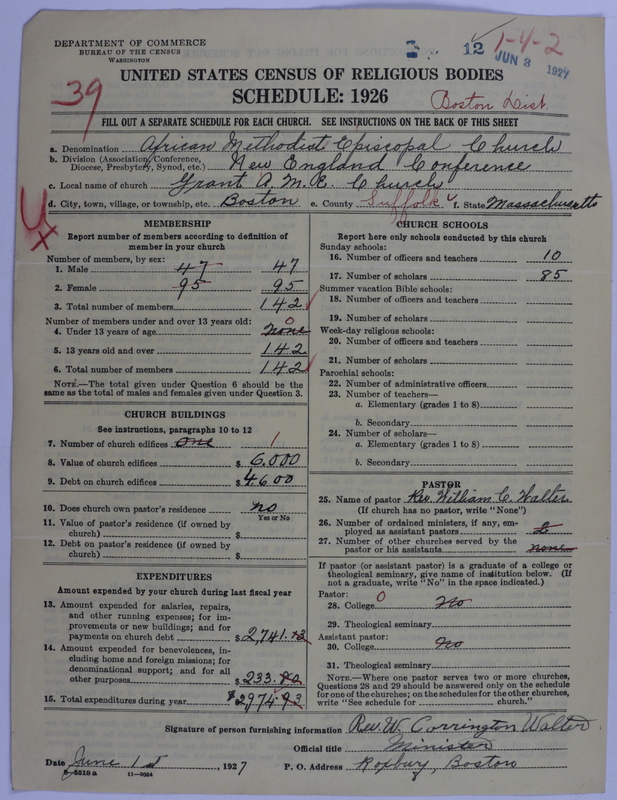 DEPARTMENT OF COMMERCE
BUREAU OF THE CENSUS
WASHINGTON
12 1-4-2
JUN 3 1927
39
UNITED STATES CENSUS OF RELIGIOUS BODIES
SCHEDULE: 1926
Boston Dist.
FILL OUT A SEPARATE SCHEDULE FOR EACH CHURCH. SEE INSTRUCTIONS ON THE BACK OF THIS SHEET
a. Denomination African Methodist Episcopal Church
b. Division (Association, Conference, Diocese, Presbytery, Synod, etc.) New England Conference
c. Local name of church Grant A. M. E. Church
d. City, town, village, or township, etc. Boston e. County Suffolk f. State Massachusetts
MEMBERSHIP
Report number of members according to definition of
member in your church
Number of members, by sex:
1. Male 47 47
2. Female 95 95
3. Total number of members 142
Number of members under and over 13 years old:
4. Under 13 years of age none 0
5. 13 years old and over 142
6. Total number of members 142
NOTE.—The total given under Question 6 should be the
same as the total of males and females given under Question 3.
CHURCH BUILDINGS
See instructions, paragraphs 10 to 12
7. Number of church edifices one 1
8. Value of church edifices $ 6,000
9. Debt on church edifices $ 4600
10. Does church own pastor's residence no
Yes or No
11. Value of pastor's residence (if owned by
church) $
12. Debt on pastor's residence (if owned by
church) $
EXPENDITURES
Amount expended by church during last fiscal year
13. Amount expended for salaries, repairs,
and other running expenses; for im-
provements or new buildings; and for
payments on church debt $ 2,741.13
14. Amount expended for benevolences, in-
cluding home and foreign missions; for
denominational support; and for all
other purposes 233.80
15. Total expenditures during year $ 2974.93
CHURCH SCHOOLS
Report here only schools conducted by this church
Sunday schools:
16. Number of officers and teachers 10
17. Number of scholars 85
Summer vacation Bible schools:
18. Number of officers and teachers
19. Number of scholars
Week-day religious schools:
20. Number of officers and teachers
21. Number of scholars
Parochial schools:
22. Number of administrative officers
23. Number of teachers—
a. Elementary (grades 1 to 8)
b. Secondary
24. Number of scholars—
a. Elementary (grades 1 to 8)
b. Secondary
PASTOR
25. Name of pastor Rev. William C. Walter
(If church has no pastor, write "None")
26. Number of ordained ministers, if any, em-
ployed as assistant pastors
27. Number of other churches served by the
pastor or his assistants none
If pastor (or assistant pastor) is a graduate of a college or
theological seminary, give name of institution below. (If
not a graduate, write "No" in the space indicated.)
Pastor:
28. College 0 No
29. Theological seminary
Assistant pastor:
30. College No
31. Theological seminary
NOTE.—Where one pastor serves two or more churches,
Questions 28 and 29 should be answered only on the schedule
for one of the churches; on the schedules for the other churches,
write "See schedule for church."
Signature of person furnishing information Rev. W. Corrington Walter
Official title Minister
Date June 1st, 1927 P. O. Address Roxbury, Boston
8-5518 a 11-9084